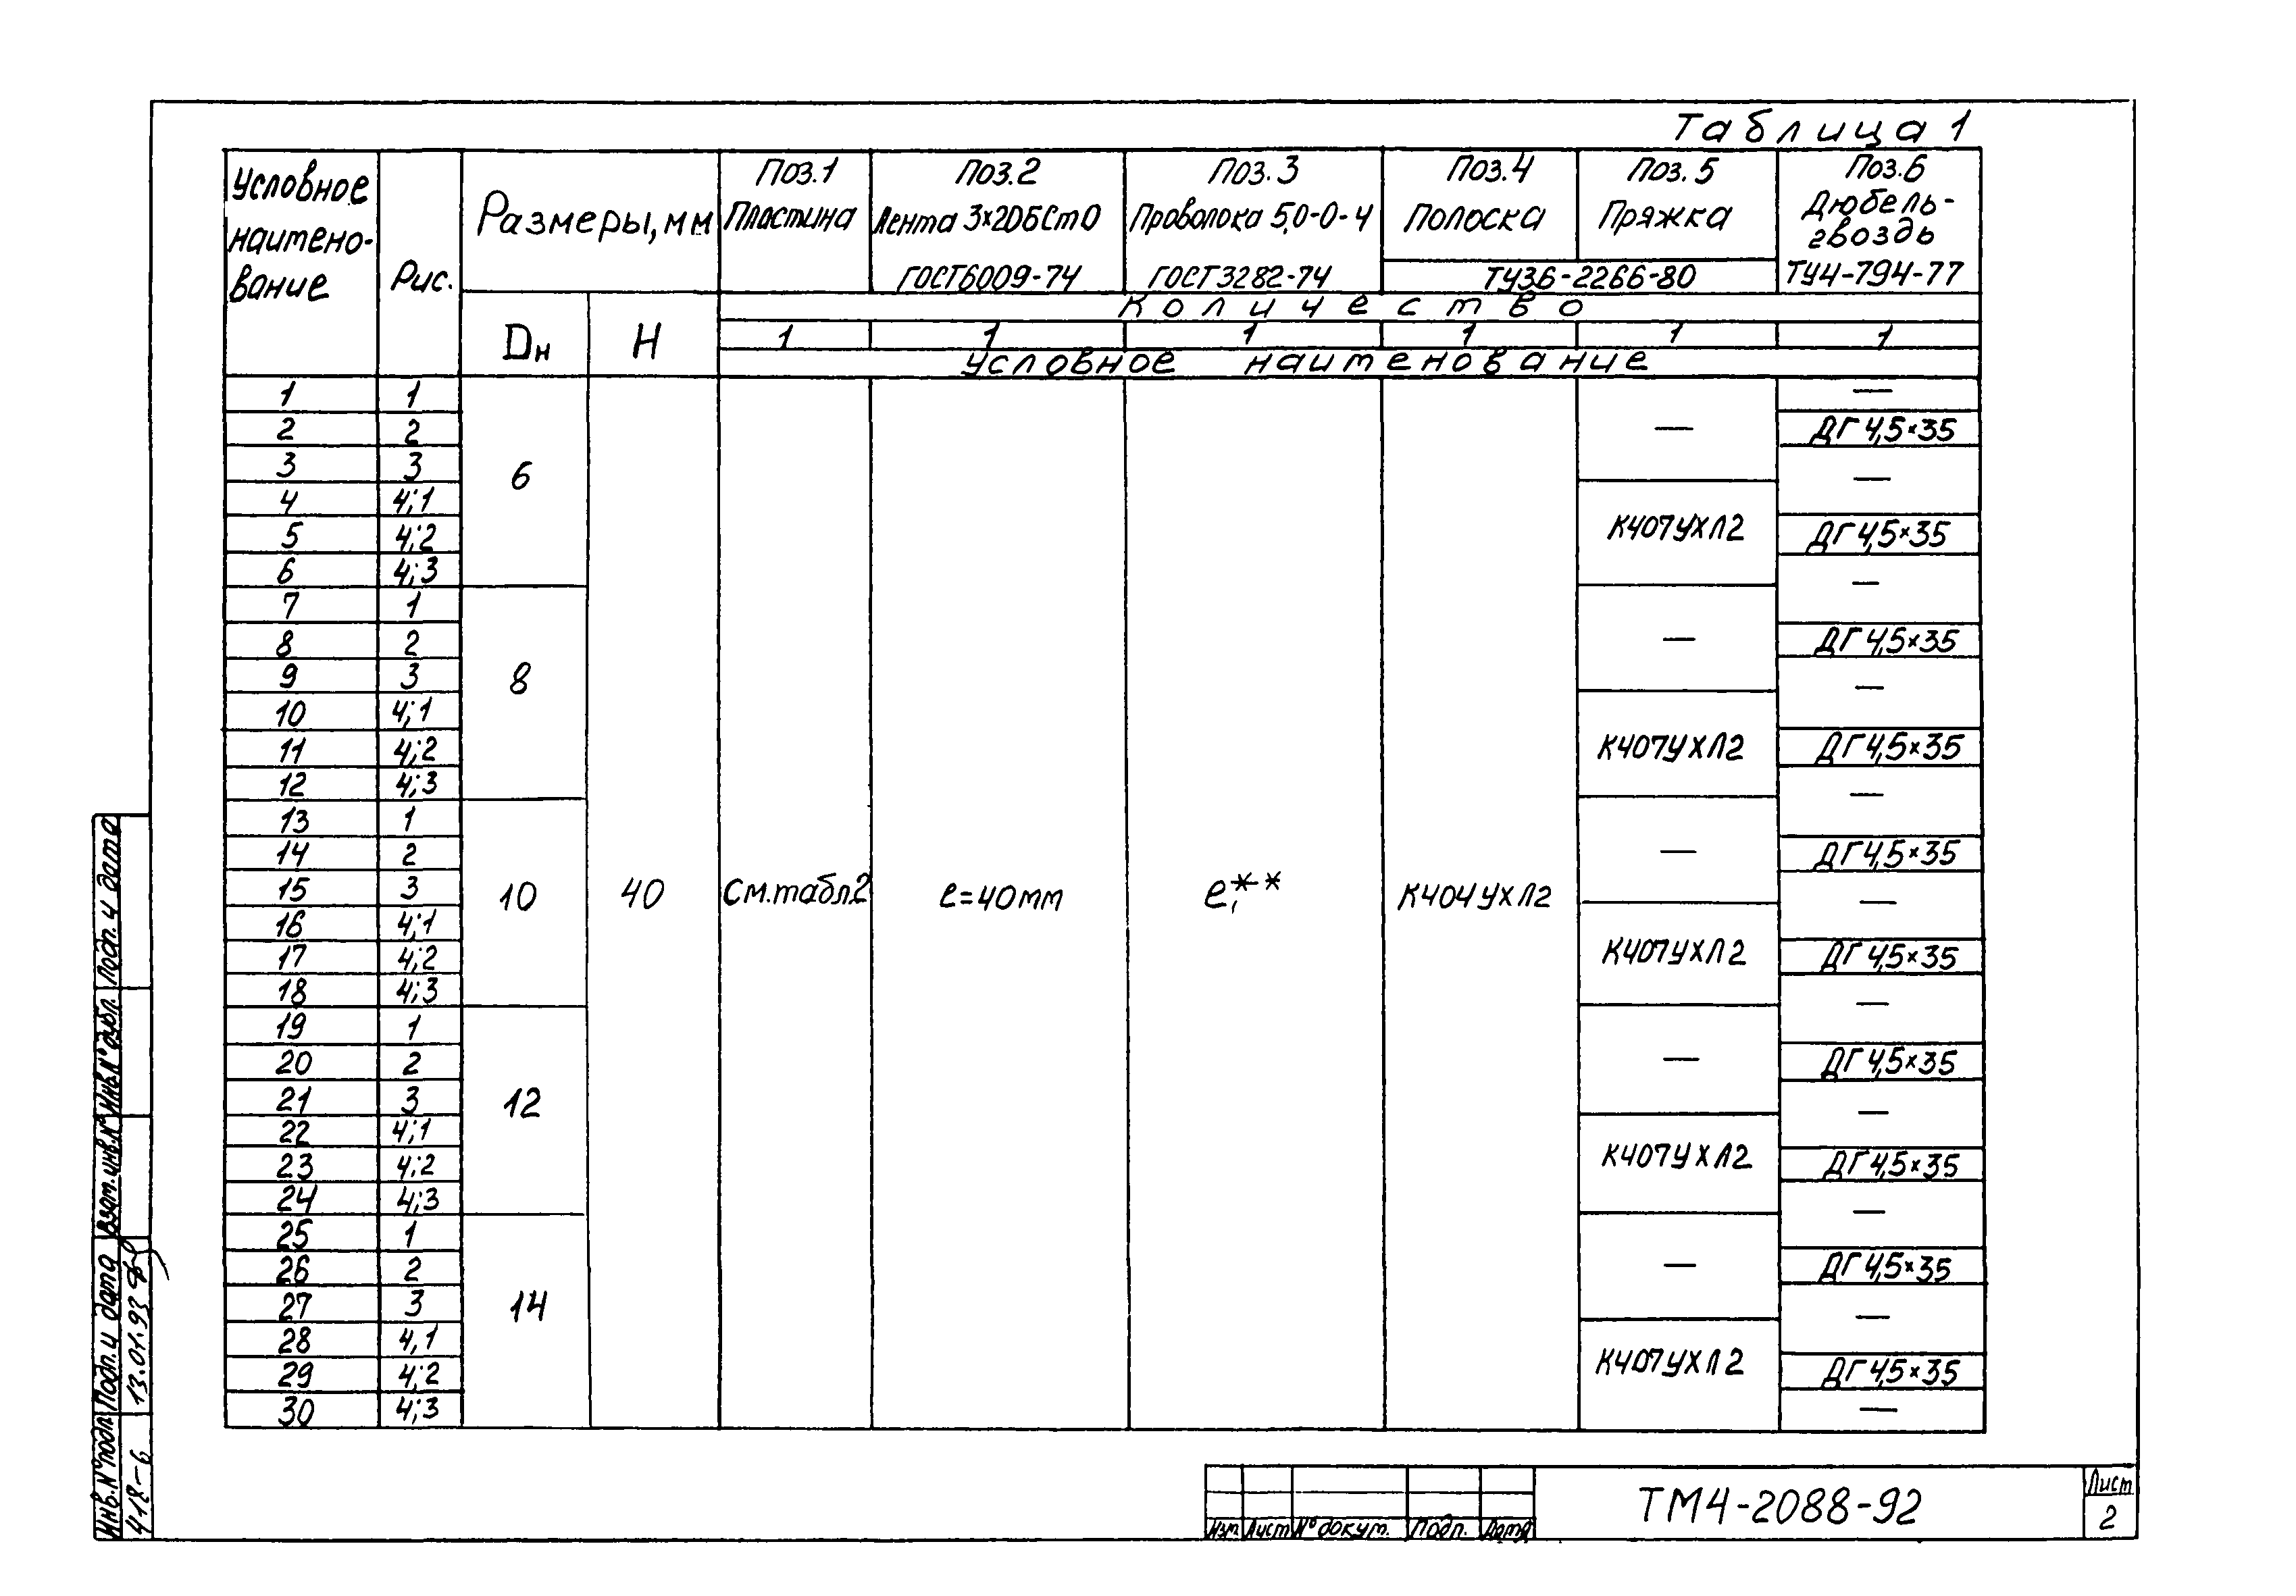 Таблица 1
Условное наимено- вание
Рис.
Размеры, мм
Поз.1 Пластина
Поз.2 Лента 3×20БСт0 ГОСТ6009-74
Поз.3 Проволока 5,0-0-4 ГОСТ3282-74
Поз.4 Полоска
Поз.5 Пряжка
ТУ36-2266-80
Поз.6 Дюбель- гвоздь ТУ4-794-77
Dн
H
Количество
1 1 1 1 1 1
Условное наименование
1 1 —
2 2 — ДГ 4,5×35
3 3 6 —
4 4;1
5 4;2 К407УХЛ2 ДГ 4,5×35
6 4;3 —
7 1
8 2 — ДГ 4,5×35
9 3 8 —
10 4;1
11 4;2 К407УХЛ2 ДГ 4,5×35
12 4;3 —
13 1
14 2 — ДГ 4,5×35
15 3 10 40 См.табл.2 ℓ=40мм ℓ,** К404УХЛ2 —
16 4;1
17 4;2 К407УХЛ2 ДГ 4,5×35
18 4;3 —
19 1
20 2 — ДГ 4,5×35
21 3 12 —
22 4;1
23 4;2 К407УХЛ2 ДГ 4,5×35
24 4;3 —
25 1
26 2 — ДГ 4,5×35
27 3 14 —
28 4,1
29 4;2 К407УХЛ2 ДГ 4,5×35
30 4;3 —
Изм. Лист №докум. Подп. Дата
ТМ4-2088-92
Лист
2
Инв.№подл. Подп. и дата Взам.инв.№ Инв.№дубл. Подп. и дата
418-6 13.01.93